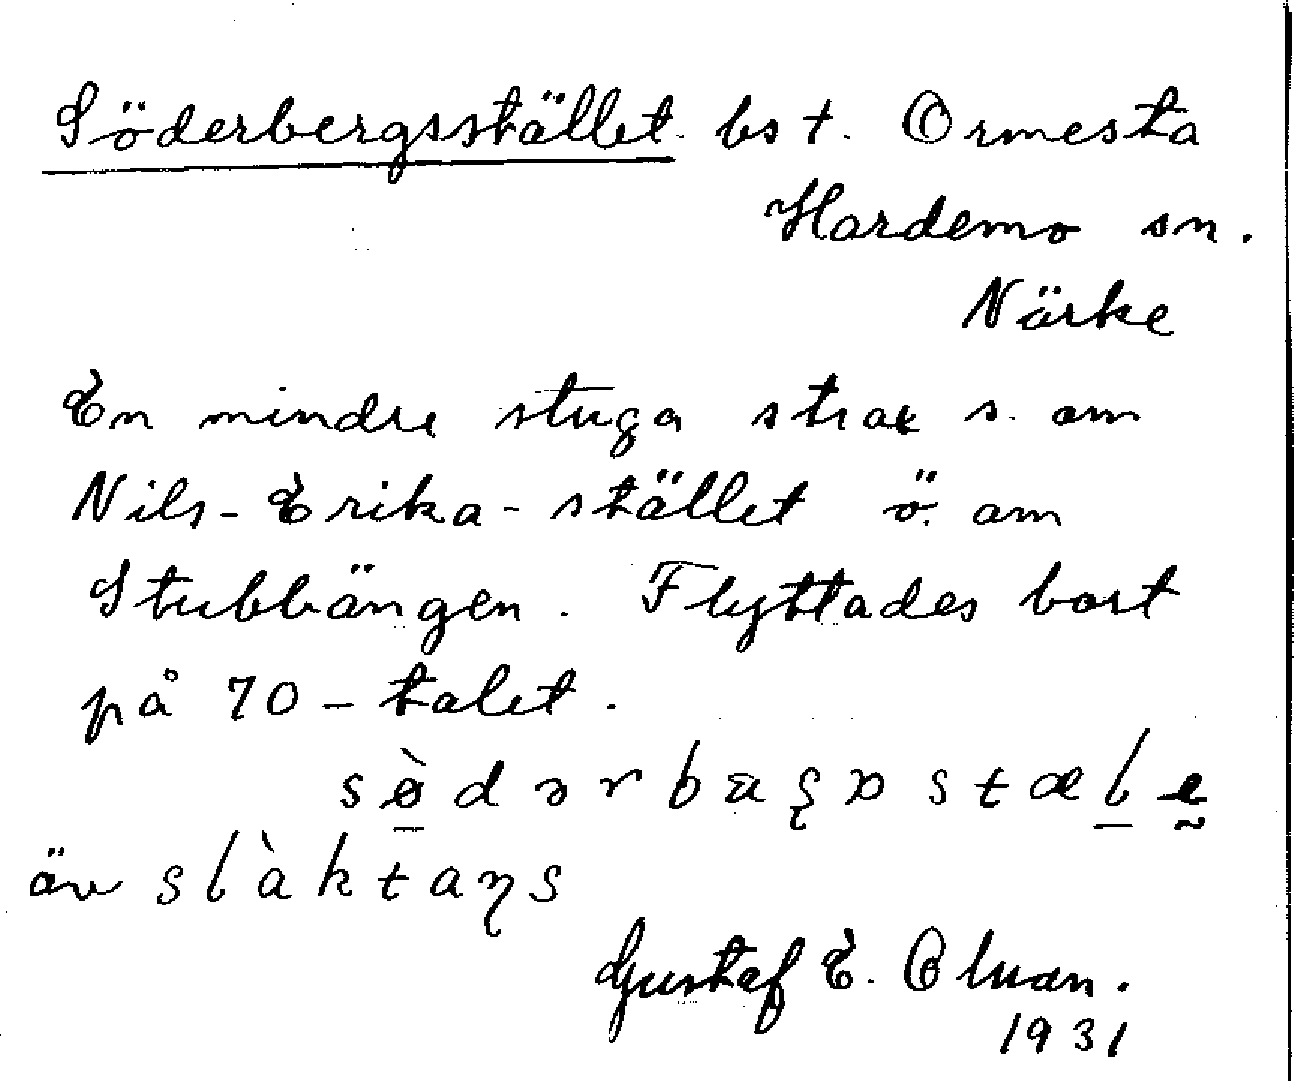 Söderbergsstället bst. Ormesta
Hardemo sn.
Närke
En mindre stuga strax s. om
Nils-Erika-stället ö. om
Stubbängen. Flyttades bort
på 70-talet.
äv slàktaꞃs
Gustaf E. Olsson.
1931